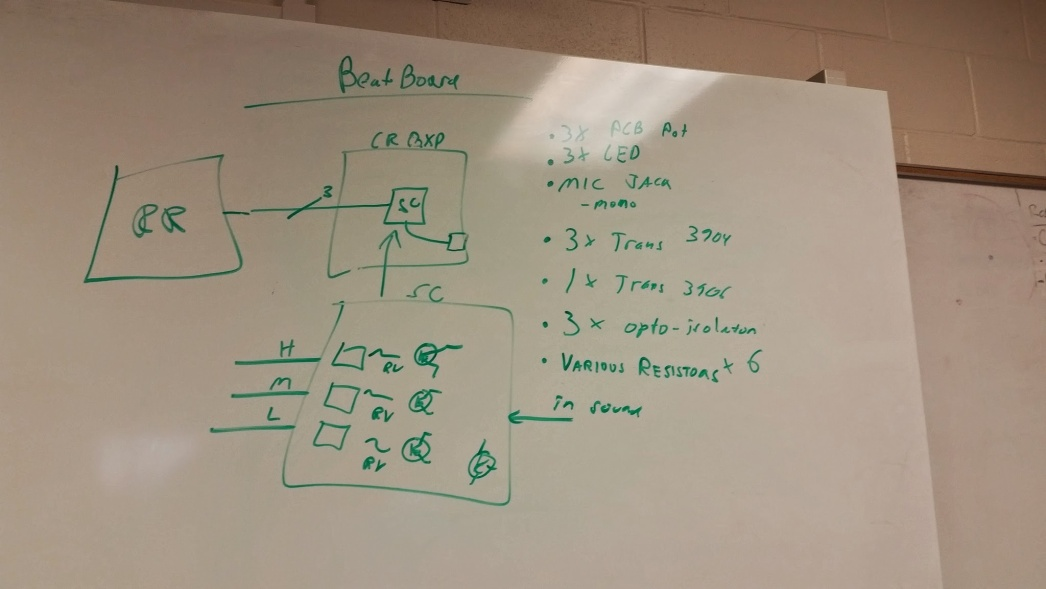 Beat Board
CR BXP
RR
3
SC
SC
H
M
L
RV
RV
RV
• 3x PCB Pot
• 3x LED
• MIC JACK
- mono
• 3x Trans 3904
• 1x Trans 3906
• 3x opto-isolator
• VARIOUS RESISTORS x 6
in sound